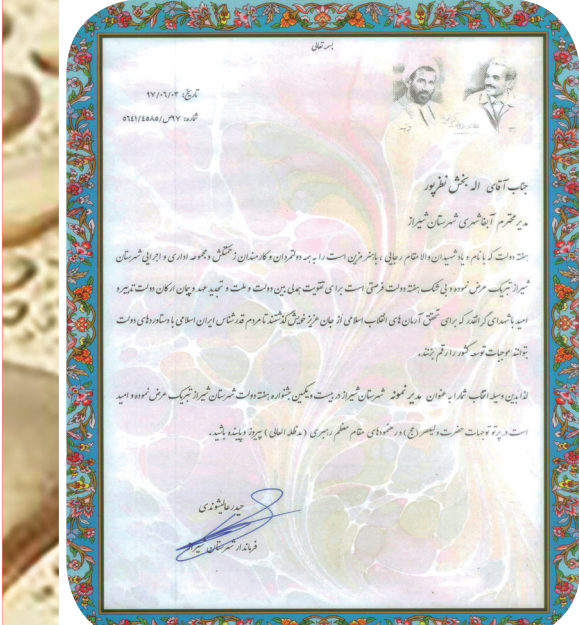 بسمه تعالی
تاریخ: ۹۷/۰۶/۰۳
شماره: ۹۷/ص/۵۶۴۱/۴۵۸۵
جناب آقای اله بخش نظرپور
مدیر محترم آبفا شهری شهرستان شیراز
هفته دولت که با نام و یاد شهیدان والامقام رجایی و باهنر مزین است را به همه دولتمردان و کارمندان زحمتکش و مجموعه اداری و اجرایی شهرستان
شیراز تبریک عرض نموده و بی شک هفته دولت فرصتی است برای تقویت همدلی بین دولت و ملت و تجدید عهد و پیمان ارکان دولت تدبیر و
امید با شهدای گرانقدر که برای تحقق آرمان های انقلاب اسلامی از جان عزیز خویش گذشتند تا مردم قدرشناس ایران اسلامی با دستاوردهای دولت
بتوانند موجبات توسعه کشور را رقم بزنند.
لذا بدین وسیله انتخاب شما را به عنوان مدیر نمونه شهرستان شیراز در بیست و یکمین جشنواره هفته دولت شهرستان شیراز تبریک عرض نموده و امید
است در پرتو توجهات حضرت ولیعصر (عج) و رهنمودهای مقام معظم رهبری (مدظله العالی) پیروز و پاینده باشید.
حیدر عالیشوندی
فرماندار شهرستان شیراز